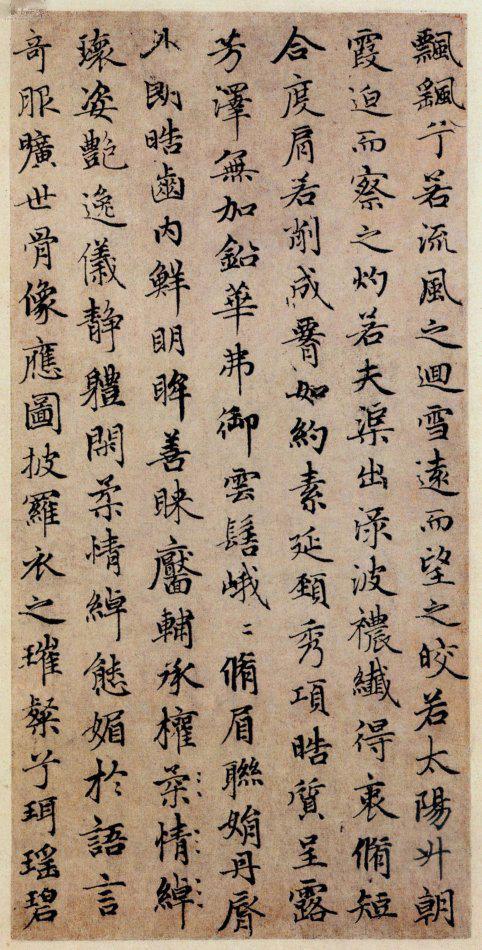 飄飖兮若流風之迴雪遠而望之皎若太陽升朝
霞迫而察之灼若夫渠出淥波襛纖得衷脩短
合度肩若削成䙴如約素延頸秀項皓質呈露
芳澤無加鉛華弗御雲髻峨〻脩眉聯娟丹脣
外朗皓齒內鮮明眸善睐靨輔承權柔情綽
瓌姿艷逸儀靜體閑柔情綽態媚於語言
奇服曠世骨像應圖披羅衣之璀粲兮珥瑤碧